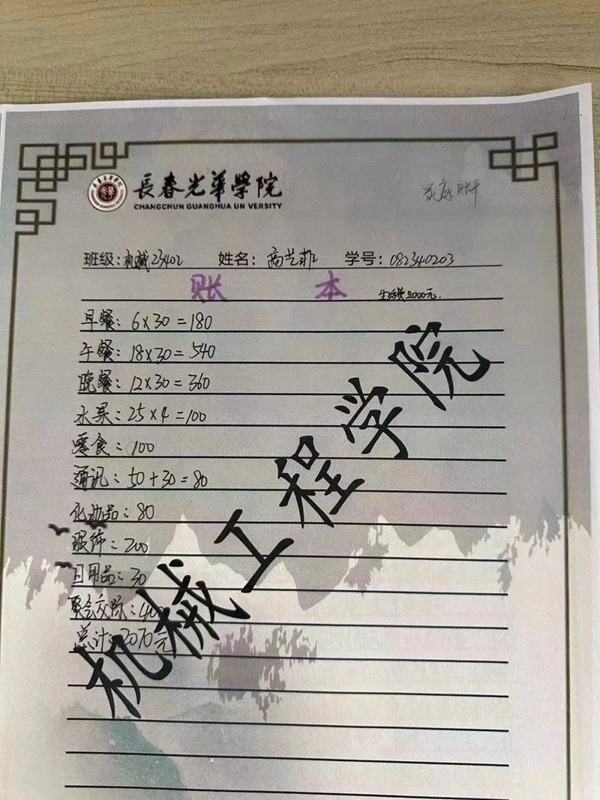 長春光華學院
CHANGCHUN GUANGHUA UN VERSITY
班级:机械23402 姓名:商艺菲 学号:082340203
账本 生活费2000元.
早餐:6×30=180
午餐:18×30=540
晚餐:12×30=360
水果:25×4=100
零食:100
通讯:50+30=80
化妆品:80
服饰:200
日用品:30
聚会交际:40
总计:2070元
机械工程学院